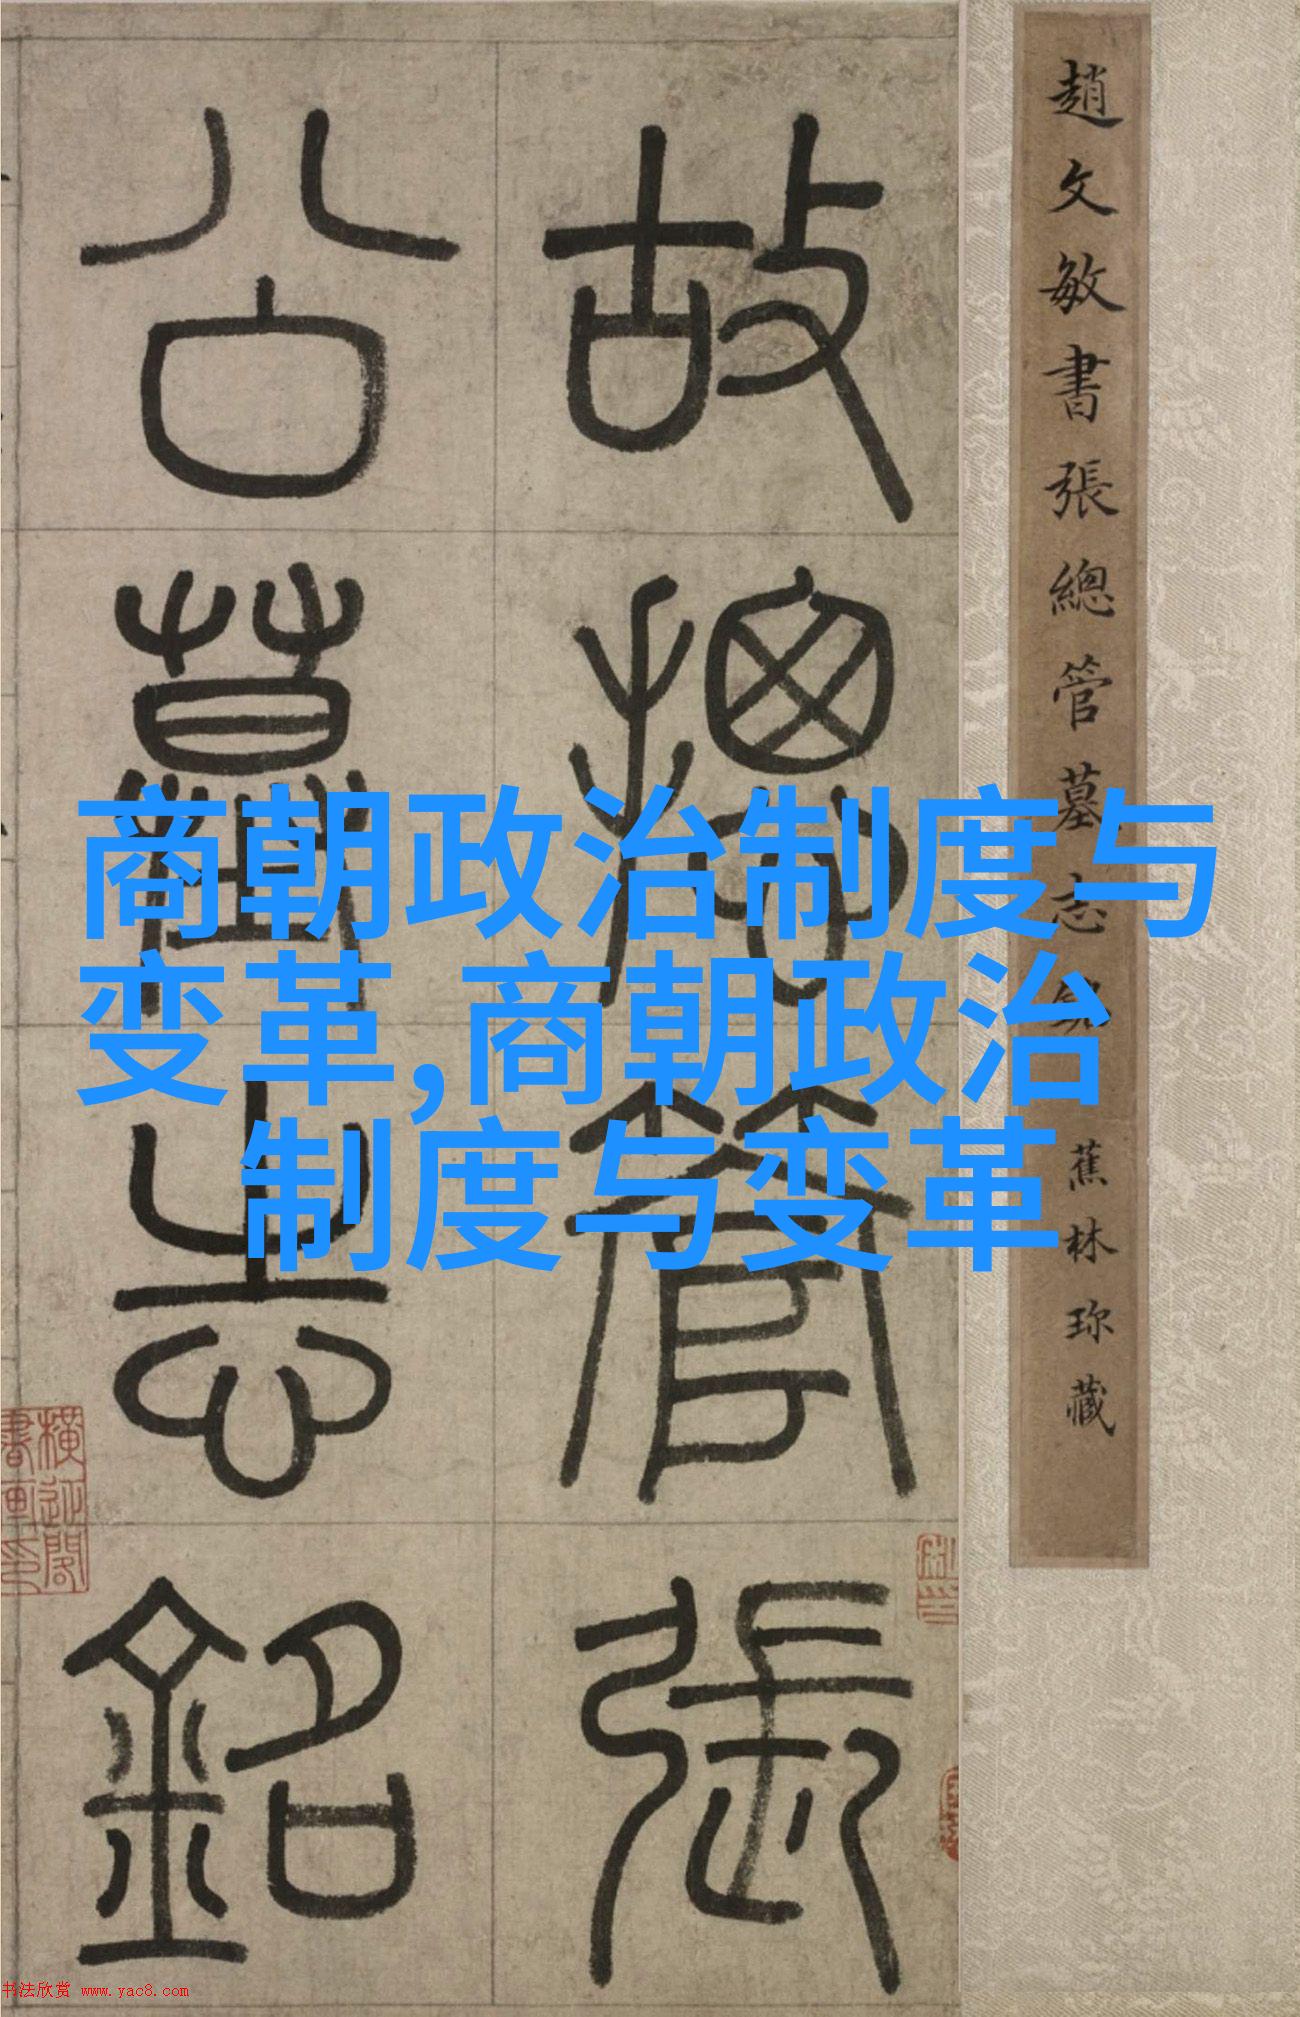 趙文敏書張總管墓志銘 蕉林珎藏
故總管張
公墓志銘
商朝政治制度与
变革,商朝政治
制度与变革
書法欣赏 www.yac8.com